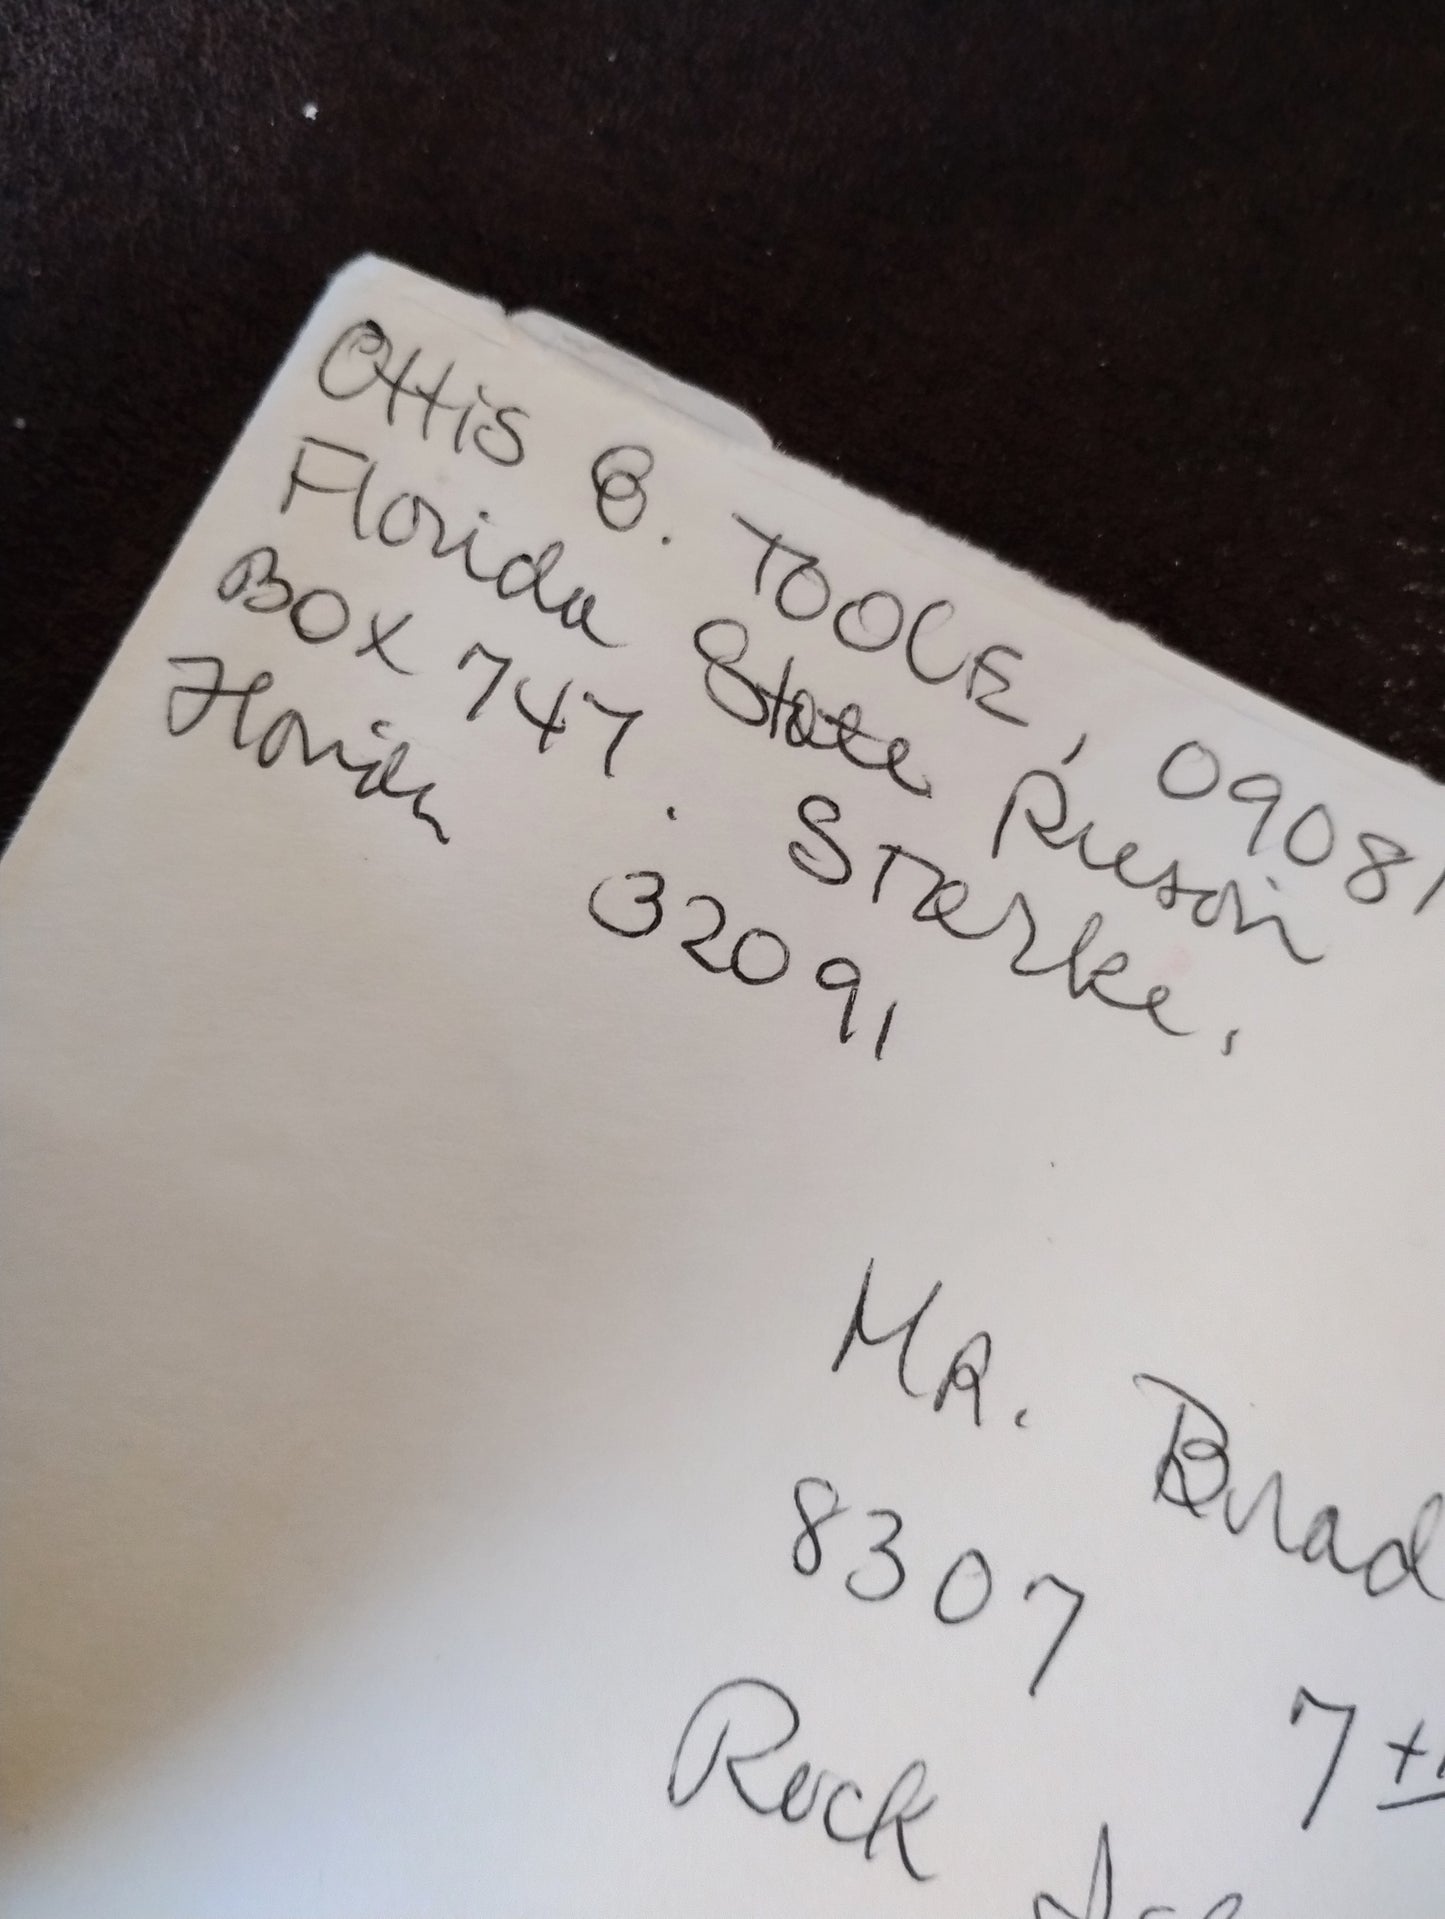 Ottis E. TOOLE, 09081
Florida State Prison
BOX 747. STarke,
Florida 32091
MR. Brad
8307 7th
Rock